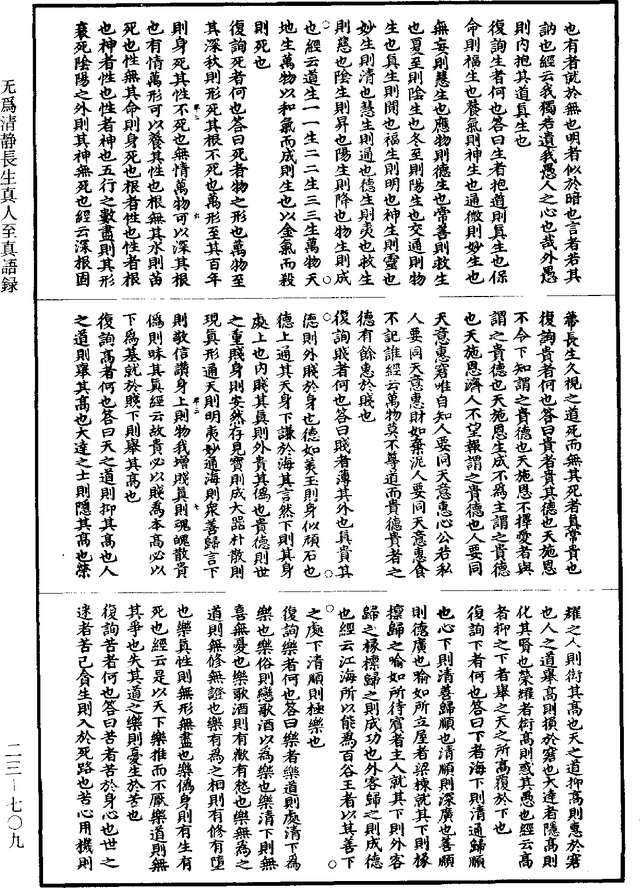 无爲清靜長生真人至真語録
也有者就於無也明者似於暗也言者若其
訥也經云我獨若遺我愚人之心也哉外愚
則内抱其道真生也
復詢生者何也荅曰生者抱道則真生也保
命則福生也養氣則神生也通微則妙生也
無妄則慧生也應物則德生也常善則救生
也夏至則陰生也冬至則陽生也交通則物
生也真生則閑也福生則明也神生則靈也
妙生則清也慧生則通也德生則夷也救生
則慈也陰生則昇也陽生則降也物生則成
也經云道生一一生二二生三三生萬物天
地生萬物以和氣而成則生也以金氣而殺
則死也
復詢死者何也荅曰死者物之形也萬物至
其深秋則形死其根不死也萬形至其百年
則身死其性不死也無情萬物可以深其根
也有情萬形可以養其性也根無其水則苗
死也性無其命則身死也根者性也性者根
也神者性也性者神也五行之數盡則其形
衰死陰陽之外則其神無死也經云深根固
蔕長生久視之道死而無其死者真常貴也
復詢貴者何也荅曰貴者貴其德也天施恩
不令下知謂之貴德也天施恩不擇愛者與
謂之貴德也天施恩生成不爲主謂之貴德
也天施恩濟人不望報謂之貴德也人要同
天意惠窘唯自知人要同天意惠心公若私
人要同天意惠財如棄泥人要同天意惠食
不記誰經云萬物莫不尊道而貴德貴者之
德有餘惠於賤也
復詢賤者何也荅曰賤者薄其外也貴其
德則外賤於身也德如美玉則身似頑石也
德上通其天身下謙於海其言然下則其身
處上也内賤其真則外貴其僞也貴德則世
之重賤身則安然存見寳則成大器朴散則
現真形通天則明夷妙通海則衆善歸言下
則敬信讚身上則物我增賤真則魂魄散貴
僞則昧其真經云故貴必以賤爲本高必以
下爲基就於賤下則舉其高也
復詢高者何也荅曰天之道則抑其高也人
之道則舉其高也大達之士則隱其高也榮
耀之人則衒其高也天之道抑高則惠於窘
也人之道舉高則損於窘也大達者隱高則
化其賢也榮耀者衒高則惑其愚也經云高
者抑之下者舉之天之所高復於下也
復詢下者何也荅曰下者海下則清通歸順
也心下則清善歸順也清順則深廣也善順
則德廣也喻如所立屋者梁棟就其下則椽
檩歸之喻如所待賓者主人就其下則外客
歸之椽檩歸之則成功也外客歸之則成德
也經云江海所以能爲百谷王者以其善下
之處下清順則極樂也
復詢樂者何也荅曰樂者樂道則處清下爲
樂也樂俗則戀歌酒以爲樂也樂清下則無
喜無憂也樂歌酒則有歡有愁也樂無爲之
道則無修無證也樂有爲之相則有修有墮
也樂真性則無形無盡也樂僞身則有生有
死也經云是以天下樂推而不厭樂道則無
其爭也失其道之樂則憂生於苦也
復詢苦者何也荅曰苦者苦於身心也世之
迷者苦己貪生則入於死路也苦心用機則
二三—七〇九